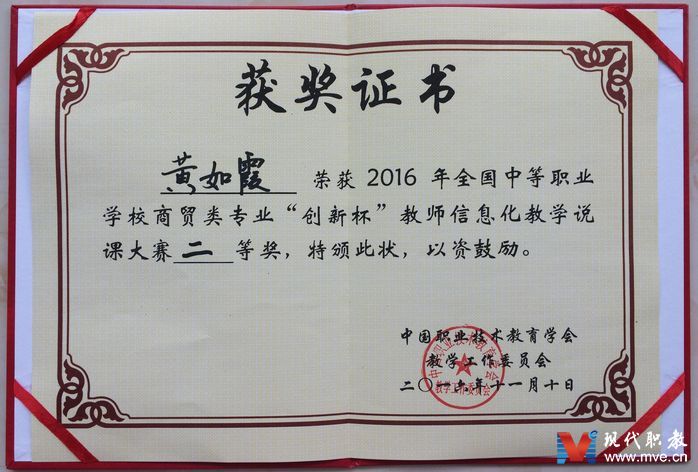 获奖证书
黄如霞 荣获 2016 年全国中等职业
学校商贸类专业“创新杯”教师信息化教学说
课大赛 二 等奖，特颁此状，以资鼓励。
中国职业技术教育学会
教学工作委员会
二〇一六年十一月十日
中国职业技术教育学会
教学工作委员会
现代职教
www.mve.cn